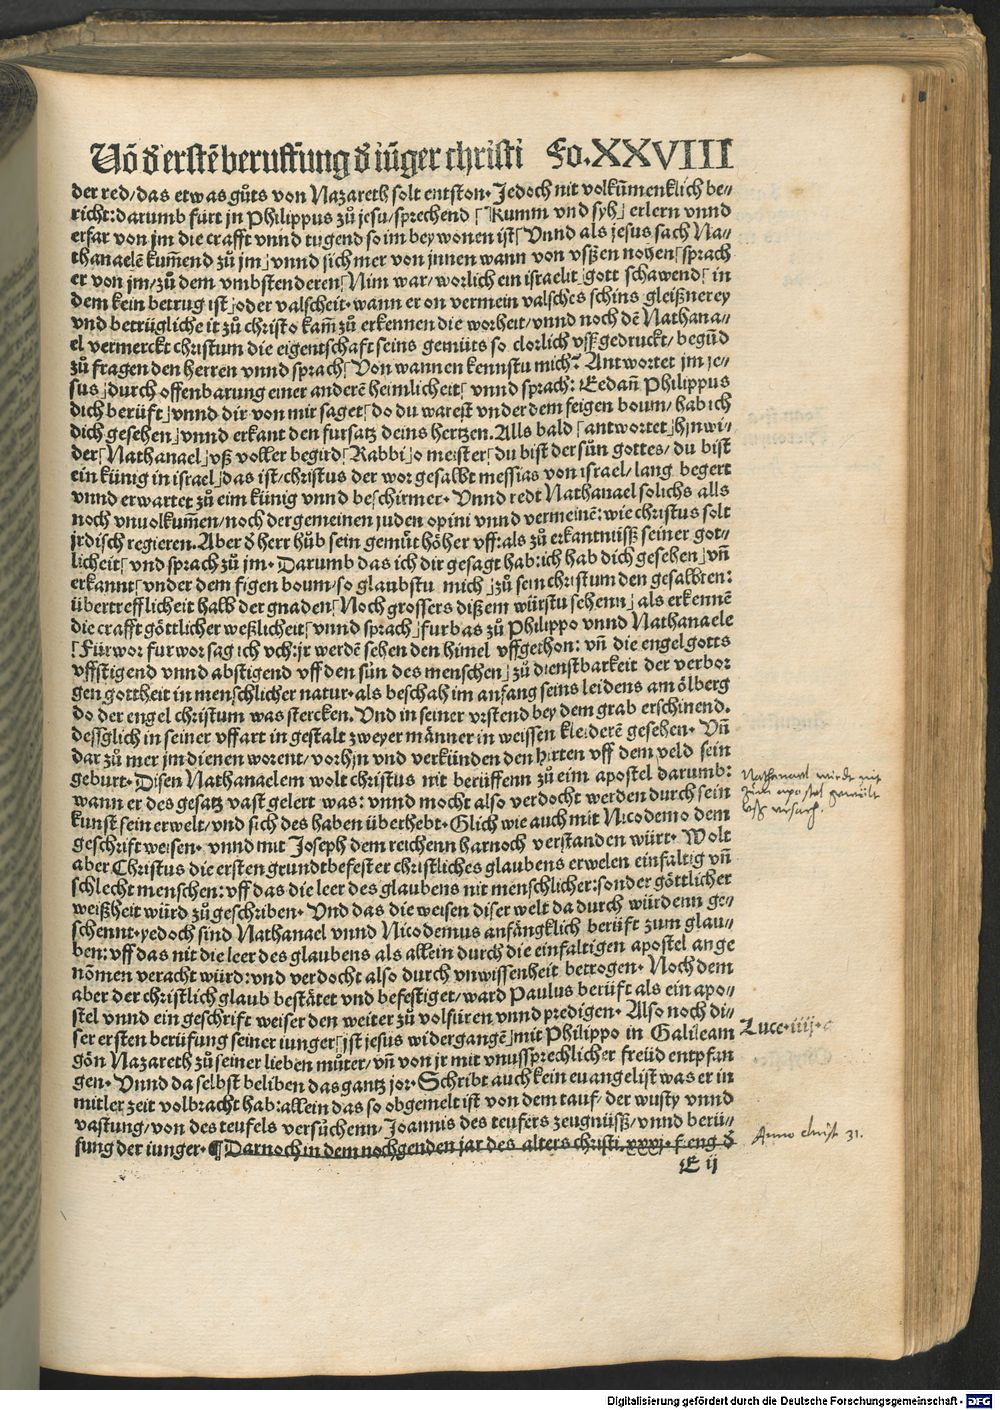 Võ d' erstẽ beruffũng d' iũger christi Fo. XXVIII
der red/das etwas gůts von Nazareth solt entston. Jedoch nit volkũmenklich be⸗
richt: darumb fürt jn Philippus zů jesu/sprechend ⌈Kumm vnd syh⌋ erlern vnnd
erfar von jm die crafft vnnd tugend so im bey wonen ist⌈ Vnnd als jesus sach Na⸗
thanaelẽ kum̃end zů jm⌋ vnnd sich mer von jnnen wann von vssen nohen⌈ sprach
er von jm/zů dem vmbstenderen⌈ Nim war/worlich ein israelit⌋ gott schawend⌈ in
dem kein betrug ist⌋ oder valscheit. wann er on vermein valsches schins gleißnerey
vnd betrügliche it zů christo kam̃ zů erkennen die worheit/vnnd noch dẽ Nathana⸗
el vermerckt christum die eigentschaft seins gemüts so clorlich vßgedruckt/begũd
zů fragen den herren vnnd sprach⌈ Von wannen kennstu mich? Antwortet jm je⸗
sus⌋ durch offenbarung einer anderẽ heimlicheit⌈ vnnd sprach: Eedañ Philippus
dich berüft⌋ vnnd dir von mir saget⌈ do du warest vnder dem feigen boum/hab ich
dich gesehen⌋ vnnd erkant den fursatz deins hertzen. Alls bald ⌈antwortet⌋ hinwi⸗
der⌈ Nathanael⌋ vß voller begird⌈ Rabbi⌋ o meister⌈ du bist der sün gottes/du bist
ein künig in israel⌋ das ist/christus der wor gesalbt messias von israel/lang begert
vnnd erwartet zů eim künig vnnd beschirmer. Vnnd redt Nathanael solichs alls
noch vnuolkum̃en/noch der gemeinen juden opini vnnd vermeinẽ: wie christus solt
jrdisch regieren. Aber d' herr hüb sein gemüt höher vff: als zů erkantnüß seiner got⸗
licheit⌈ vnd sprach zů jm. Darumb das ich dir gesagt hab: ich hab dich gesehen⌋ vñ
erkannt⌈ vnder dem figen boum/so glaubstu mich⌋ zů sein christum den gesalbten:
übertrefflicheit halb der gnaden⌈ Noch grossers dißem würstu sehenn⌋ als erkennẽ
die crafft göttlicher weßlicheit⌈ vnnd sprach⌋ furbas zů Philippo vnnd Nathanaele
⌈Fürwor furwor sag ich vch: jr werdẽ sehen den himel vffgethon: vñ die engel gotts
vffstigend vnnd abstigend vff den sün des menschen⌋ zů dienstbarkeit der verbor
gen gottheit in menschlicher natur. als beschah im anfang seins leidens am ölberg
do der engel christum was stercken. Vnd in seiner vrstend bey dem grab erschinend.
desglich in seiner vffart in gestalt zweyer männer in weissen kleiderẽ gesehen. Vñ
dar zů mer jm dienen worent/vorhin vnd verkünden den hirten vff dem veld sein
geburt. Disen Nathanaelem wolt christus nit berüffenn zů eim apostel darumb:
wann er des gesatz vast gelert was: vnnd mocht also verdocht werden durch sein
kunst sein erwelt/vnd sich des haben überhebt. Glich wie auch mit Nicodemo dem
geschrift weisen. vnnd mit Joseph dem reichenn harnoch verstanden würt. Wolt
aber Christus die ersten grundtbefester christliches glaubens erwelen einfaltig vñ
schlecht menschen: vff das die leer des glaubens nit menschlicher: sonder göttlicher
weißheit würd zůgeschriben. Vnd das die weisen diser welt da durch würdenn ge⸗
schennt. yedoch sind Nathanael vnnd Nicodemus anfängklich berüft zum glau⸗
ben: vff das nit die leer des glaubens als allein durch die einfaltigen apostel ange
nõmen veracht würd: vnd verdocht also durch vnwissenheit betrogen. Noch dem
aber der christlich glaub bestätet vnd befestiget/ward Paulus berüft als ein apo⸗
stel vnnd ein geschrift weiser den weiter zů volfüren vnnd predigen. Also noch di⸗
ser ersten berüfung seiner iunger⌈ ist jesus widergangẽ⌋ mit Philippo in Galileam
gön Nazareth zů seiner lieben můter/vñ von jr mit vnussprechlicher freüd entpfan
gen. Vnnd da selbst beliben das gantz jor. Schribt auch kein euangelist was er in
mitler zeit volbracht hab: allein das so obgemelt ist von dem tauf/der wusty vnnd
vastung/von des teufels versůchenn/Joannis des teufers zeugnüß/vnnd berü⸗
fung der iunger. ¶Darnoch in dem nochgenden jar des alters christi. xxxj. fieng d'
E ij
Nathanael wirdt nit
zům apostel gewölt
vß vrsach.
Luce. iiij. c
Anno christi 31.
Digitalisierung gefördert durch die Deutsche Forschungsgemeinschaft - DFG